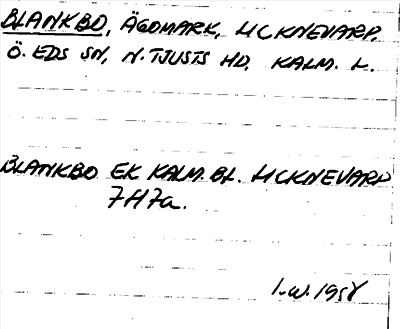 BLANKBO, ÄGOMARK, LICKNEVARP.
Ö. EDS SN, N. TJUSTS HD. KALM. L.
BLANKBO EK KALM. BL. LICKNEVARP
7H7a.
I.W. 1958